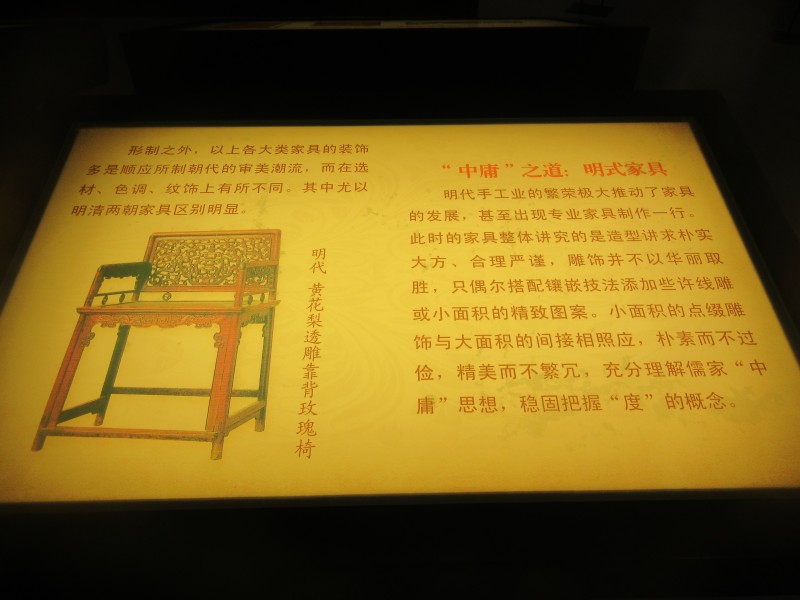 形制之外，以上各大类家具的装饰
多是顺应所制朝代的审美潮流，而在选
材、色调、纹饰上有所不同。其中尤以
明清两朝家具区别明显。
明代 黄花梨透雕靠背玫瑰椅
“中庸”之道：明式家具
明代手工业的繁荣极大推动了家具
的发展，甚至出现专业家具制作一行。
此时的家具整体讲究的是造型讲求朴实
大方、合理严谨，雕饰并不以华丽取
胜，只偶尔搭配镶嵌技法添加些许线雕
或小面积的精致图案。小面积的点缀雕
饰与大面积的间接相照应，朴素而不过
俭，精美而不繁冗，充分理解儒家“中
庸”思想，稳固把握“度”的概念。